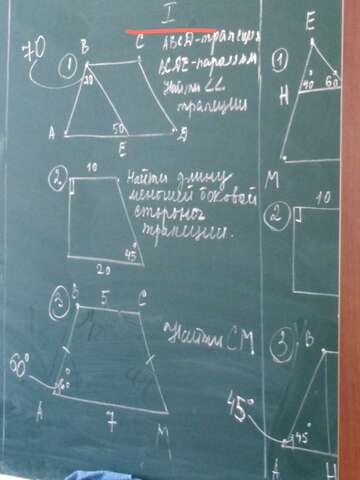 I
ABCD-трапеция
BCDE-паралл-м
Найти ∠∠
трапеции
70
1
B
C
30
50
A
E
D
2
10
Найти длину
меньшей боковой
стороны
трапеции.
45°
20
3
B
5
C
Найти CM
60°
60°
A
7
M
1
E
H
40°
60°
M
2
10
3
B
45°
45°
A
H